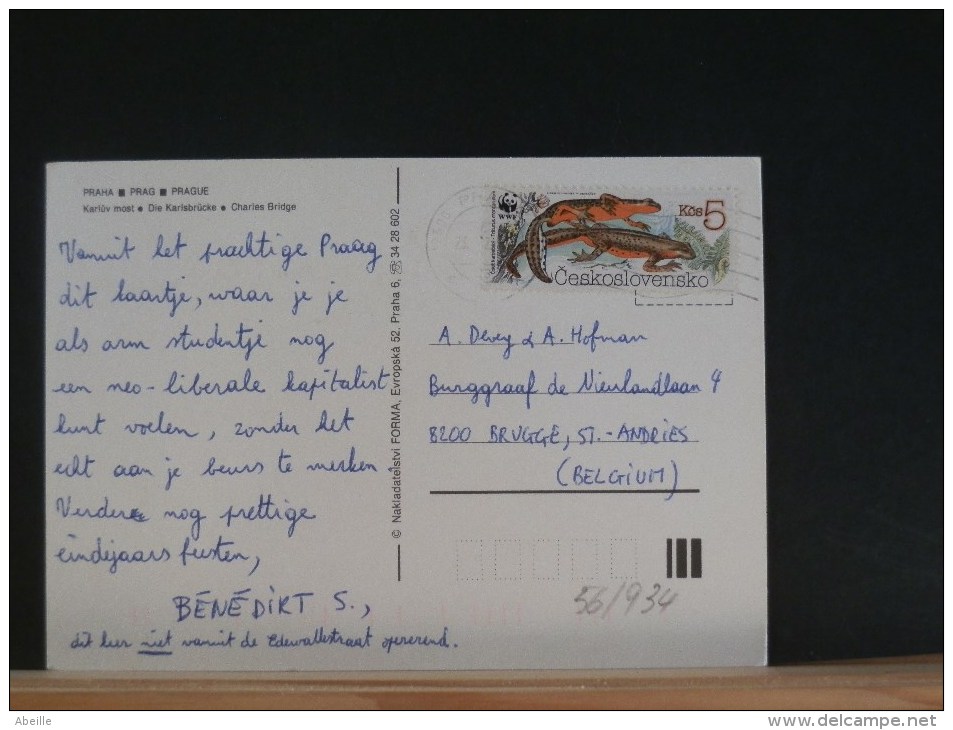 PRAHA ■ PRAG ■ PRAGUE
Karlův most ● Die Karlsbrücke ● Charles Bridge
Vanuit het prachtige Praag
dit kaartje, waar je je
als arm studentje nog
een neo-liberale kapitalist
kunt voelen, zonder het
echt aan je beurs te merken.
Verder nog prettige
eindejaars feesten,
BÉNÉDIKT S.,
dit keer niet vanuit de Edewallestraat opererend.
© Nakladatelství FORMA, Evropská 52, Praha 6, ☏ 34 28 602
WWF
Kčs 5
Československo
A. Devey & A. Hofman
Burggraaf de Nieulandlaan 4
8200 BRUGGE, ST.-ANDRIES
(BELGIUM)
56/934
Abeille
www.delcampe.net